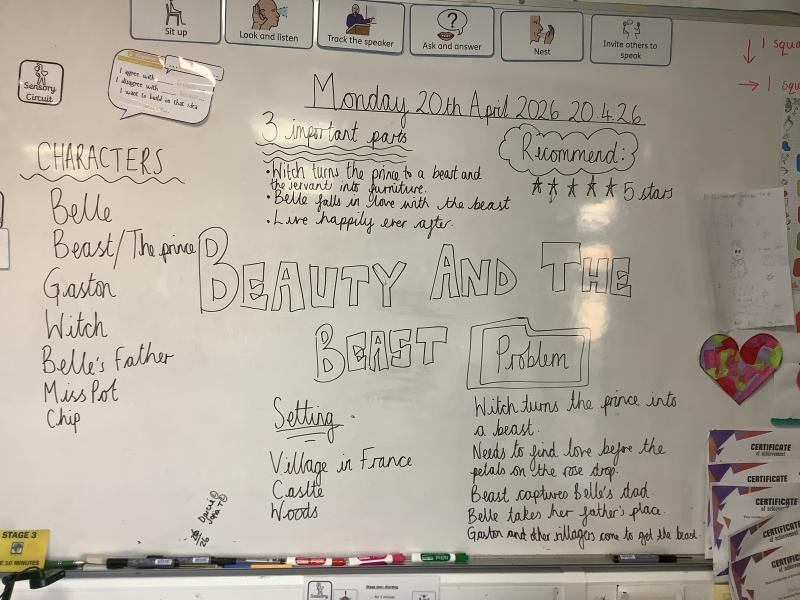 Sit up
Look and listen
Track the speaker
Ask and answer
Nest
Invite others to
speak
↓ 1 squa
→ 1 squ
Sensory
Circuit
I agree with
I disagree with
I want to build on that idea
Monday 20th April 2026 20.4.26
3 important parts
• Witch turns the prince to a beast and
the servant into furniture.
• Belle falls in love with the beast
• Live happily ever after.
Recommend:
5 stars
CHARACTERS
Belle
Beast/The prince
Gaston
Witch
Belle's Father
Miss Pot
Chip
BEAUTY AND THE
BEAST
Problem
Witch turns the prince into
a beast.
Needs to find love before the
petals on the rose drop.
Beast captures Belle's dad.
Belle takes her father's place.
Gaston and other villagers come to get the beast.
Setting
Village in France
Castle
Woods
STAGE 3
10 MINUTES
CERTIFICATE
of achievement
CERTIFICATE
of achievement
CERTIFICATE
of achievement
CERTIFICATE
CERTIFICATE
of achievement
Sensory